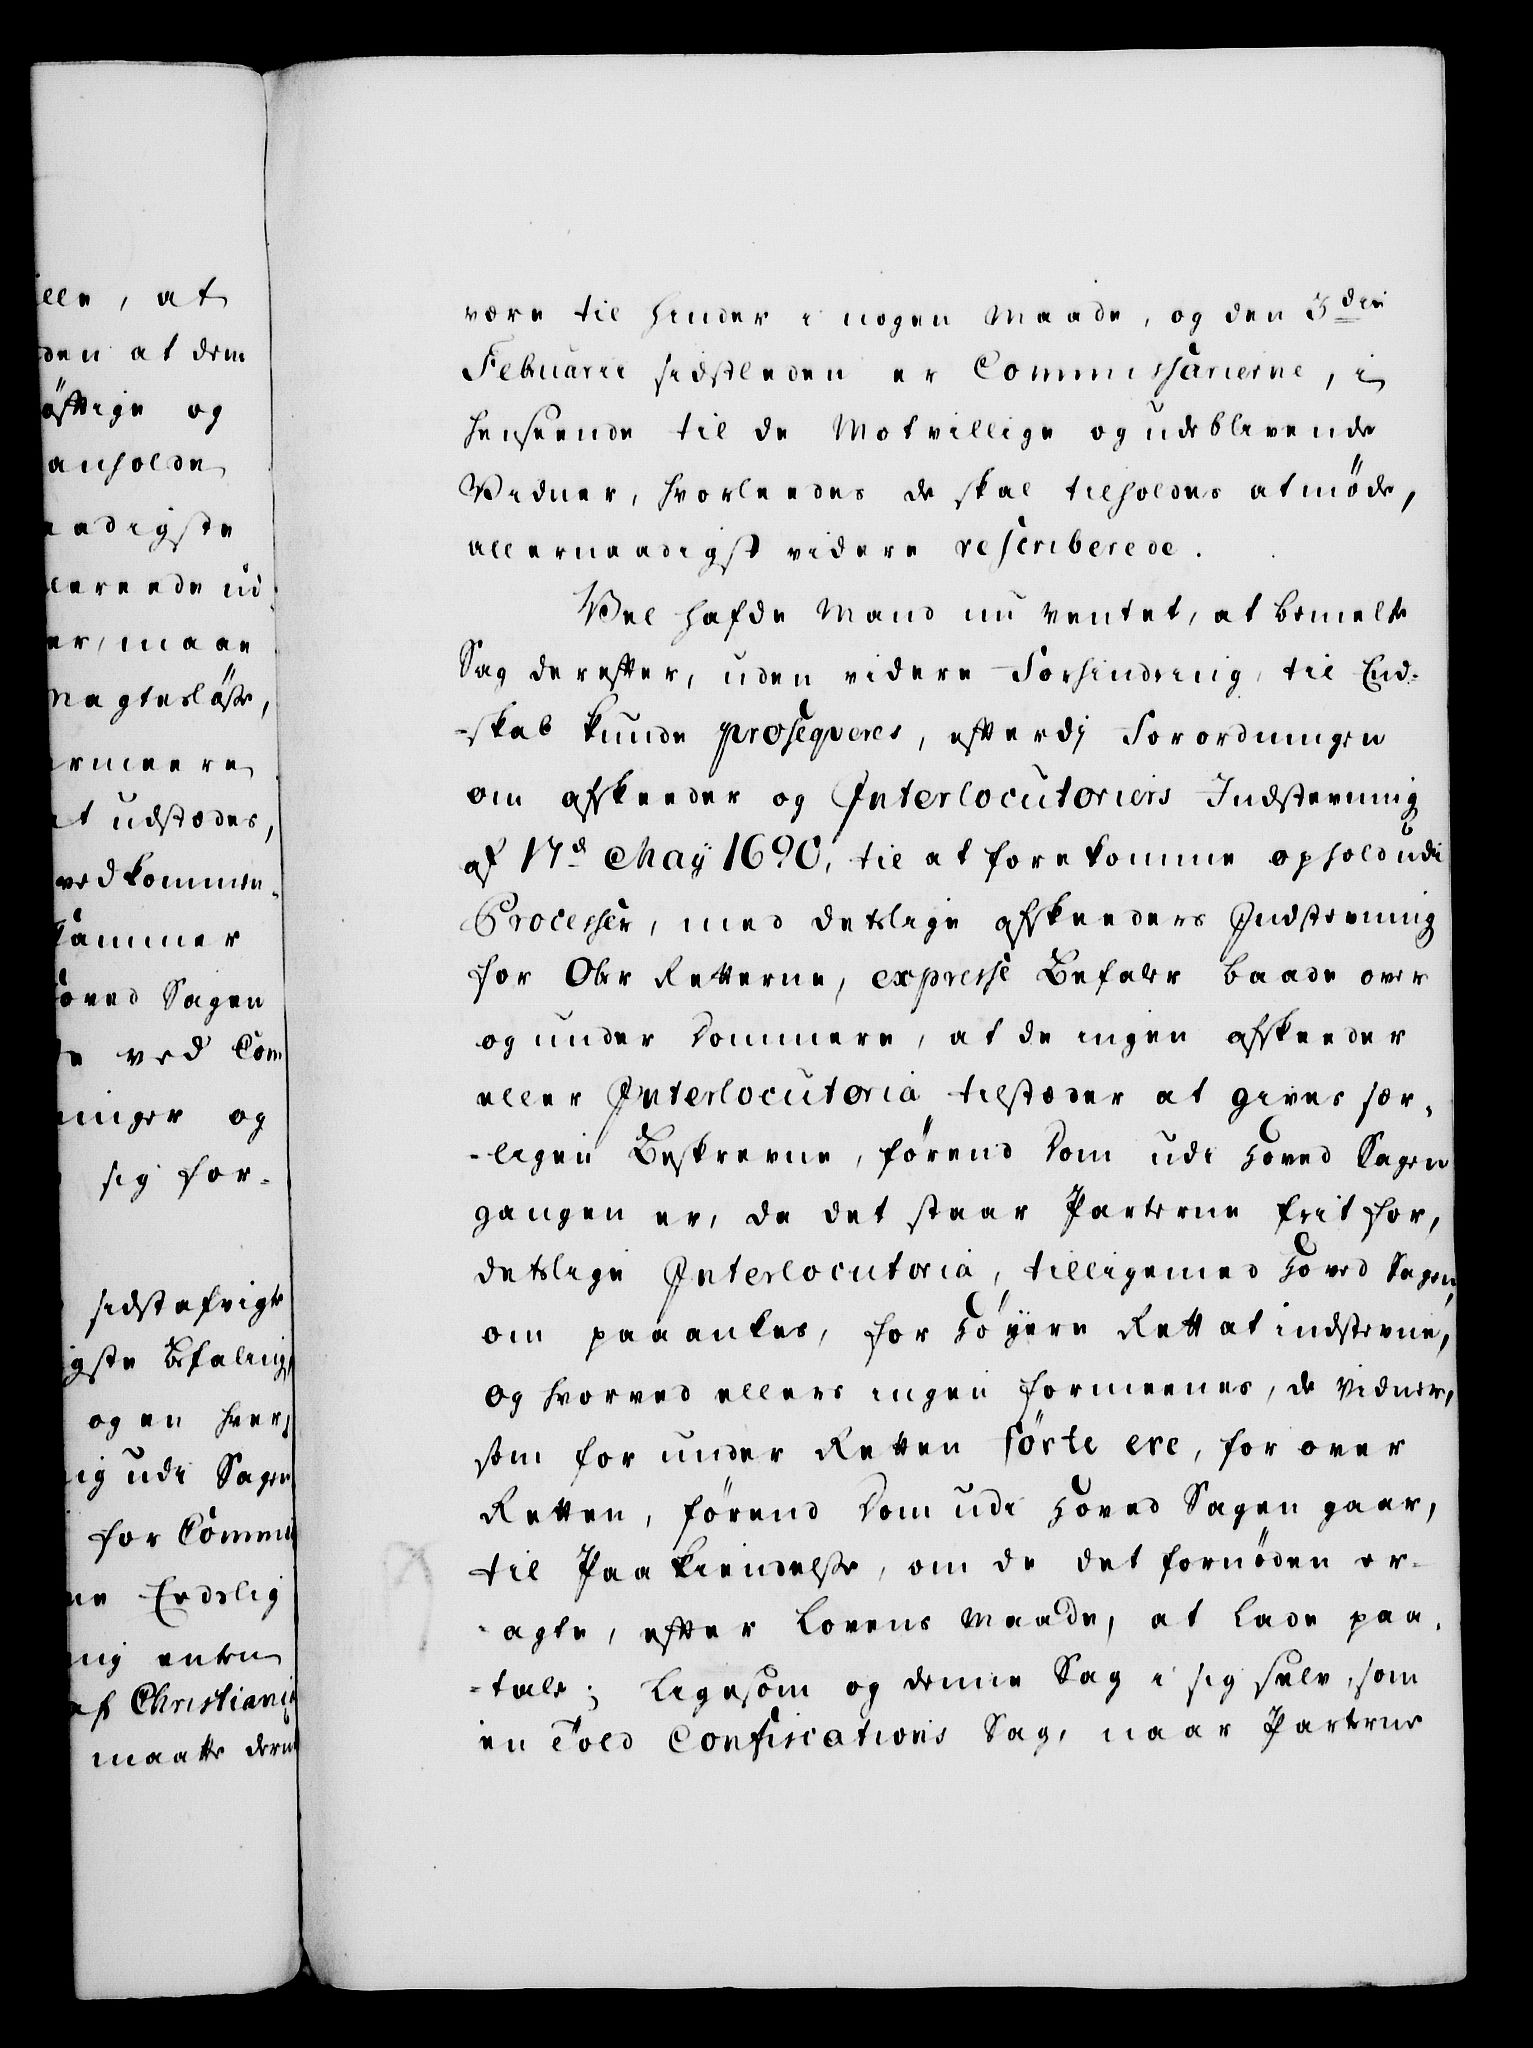 ille, at
den at dem
öfftige og
anholde
aadigste
llereede ud-
er, maae
Magtesløse,
ermeere
at udstædes,
vedkommen-
Cammer
Hoved Sagen
ved Com
ninger og
sig for-
sidst afvigte
igste Befaling,
og en hver
ig udi Sagen
for Commi
ne Endelig
ing enten
af Christiania
maatte derm
være til hinder i nogen maade, og den 3die
Febuarii sidstleden er Commissarierne, i
henseende til de Motvillige og udeblivende
Vidner, hvorleedes de skal tilholdes at møde,
allernaadigst videre rescriberede.
Vel hafde Mand nu ventet, at bemelte
Sag derefter, uden videre Forhindring, til End-
-skab kunde proseqveres, efterdj Forordningen
om afskeeder og Interlocutoriers Indstevning
af 17d May 1690, til at forekomme ophold udi
Processer, med detslige afskeeders Indstevning
for Over Retterne, expresse Befaler baade over
og under Dommere, at de ingen afskeeder
eller Interlocutoria tilstæder at gives sær-
-ligen Beskrevne, førend Dom udi Hoved Sagen
gangen er, da det staar Parterne frit for,
detslige Interlocutoria, tilligemed Hoved Sagen,
om paaankes, for Høyere Rett at indstevne,
og hvorved ellers ingen formeenes, de Vidner,
som for under Retten førte ere, for over
Retten, førend Dom udi Hoved Sagen gaar,
til Paakiendelse, om de det fornøden er-
-agte, efter Lovens Maade, at lade paa-
-tale; Ligesom og denne Sag i sig selv, som
en Told Confiscations Sag, naar Parterne